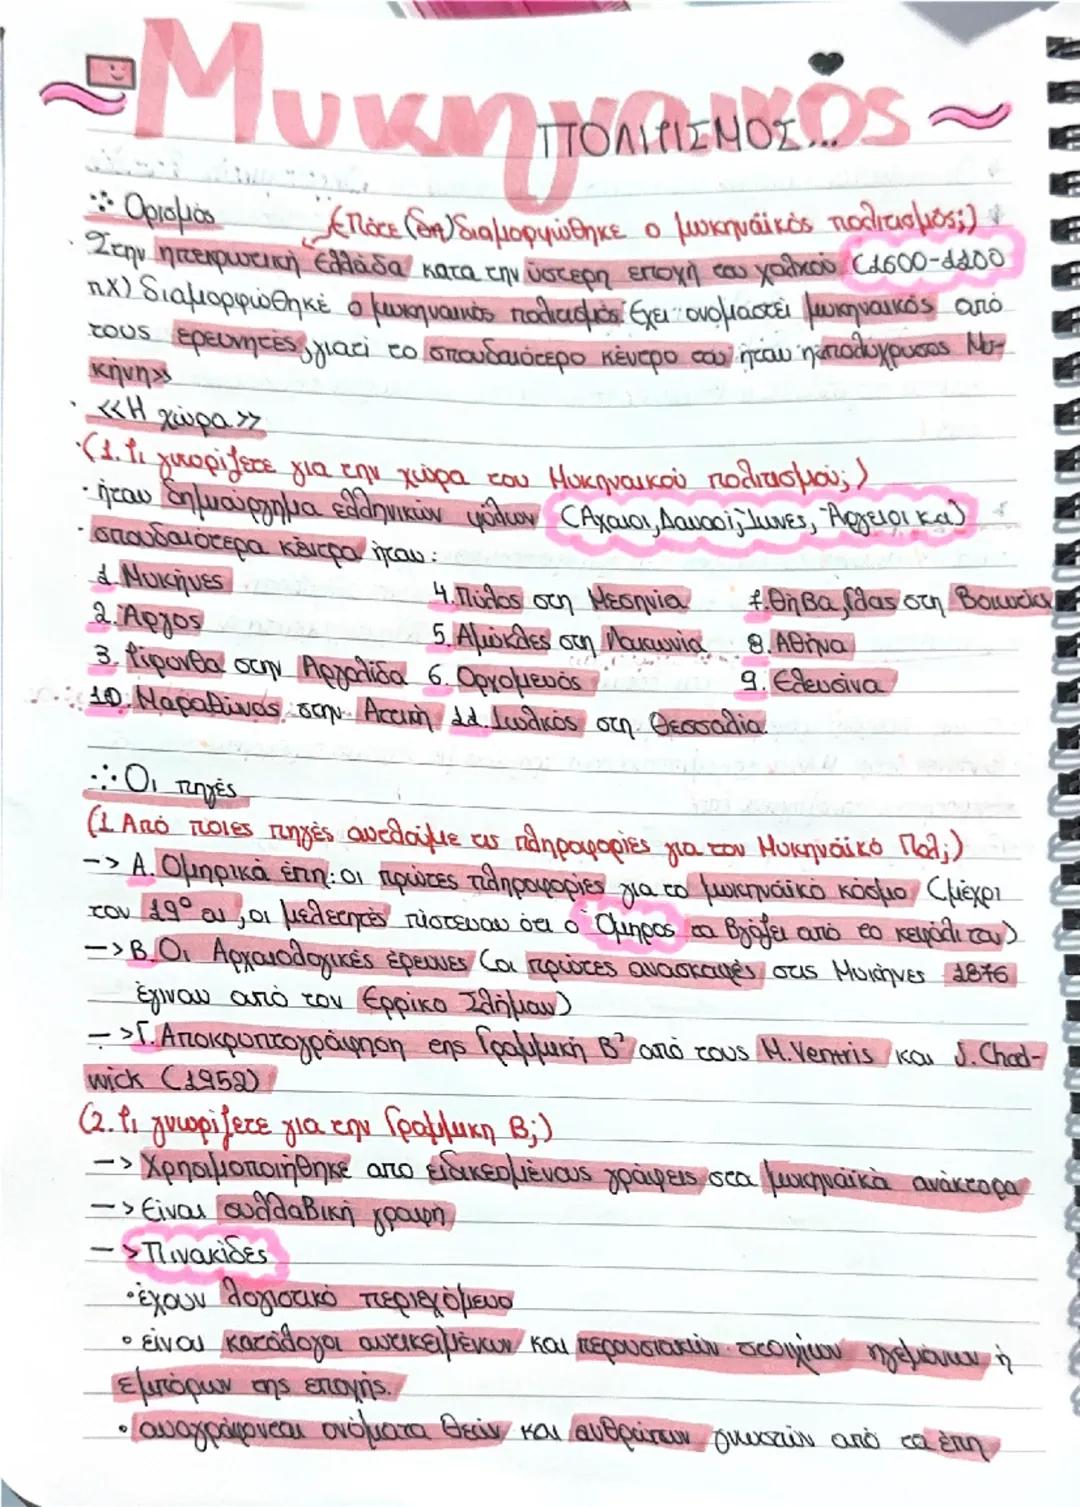 Μυκηναϊκός
ΠΟΛΙΤΙΣΜΟΣ...
Ορισμός (Πότε διαμορφώθηκε ο μυκηναϊκός πολιτισμός;)
· Στην ηπειρωτική Ελλάδα κατα την ύστερη εποχή του χαλκού (1600-1100
πΧ) διαμορφώθηκε ο μυκηναικός πολιτισμός. Έχει ονομαστεί μυκηναικός από
τους ερευνητές, γιατί το σπουδαιότερο κέντρο του ήταν η πολύχρυσος Μυ-
κήνη»
· <<Η χώρα>>
·(1. Τι γνωρίζετε για την χώρα του Μυκηναικού πολιτισμού;)
· ήταν δημιούργημα ελληνικών φύλων (Αχαιοι, Δαναοί, Ίωνες, Αργείοι κα)
· σπουδαιότερα κέντρα ήταν:
1. Μυκήνες 4. Πύλος στη Μεσηνία 7. Θήβα, Γλας στη Βοιωτία
2. Άργος 5. Αμύκλες στη Λακωνία 8. Αθήνα
3. Τίρυνθα στην Αργολίδα 6. Ορχομενός 9. Ελευσίνα
10. Μαραθώνας στην Αττική 11. Ιωλκός στη Θεσσαλία.
Οι πηγές
(1 Από ποιες πηγές αντλούμε τις πληροφορίες για τον Μυκηναϊκό Πολ;)
-> Α. Ομηρικά έπη: οι πρώτες πληροφορίες για το μυκηναϊκό κόσμο (μέχρι
τον 19° αι, οι μελετητές πίστευαν ότι ο Όμηρος τα βγάζει από το κεφάλι του)
-> Β. Οι Αρχαιολογικές έρευνες (οι πρώτες ανασκαφές στις Μυκήνες 1876
έγιναν από τον Ερρίκο Σλήμαν)
-> Γ. Αποκρυπτογράφηση της Γραμμική Β' από τους M. Ventris και J. Chad-
wick (1952)
(2. Τι γνωρίζετε για την Γραμμικη Β;)
-> Χρησιμοποιήθηκε απο ειδικευμένους γράφεις στα μυκηναϊκά ανάκτορα
-> Είναι συλλαβική γραφη
-> Πινακίδες
· έχουν λογιστικό περιεχόμενο
· είναι κατάλογοι αντικειμένων και περουσιακών στοιχίων ηγεμόνων ή
εμπόρων της εποχής.
· αναγράφονται ονόματα θεών και ανθρώπων γνωστών από τα έπη